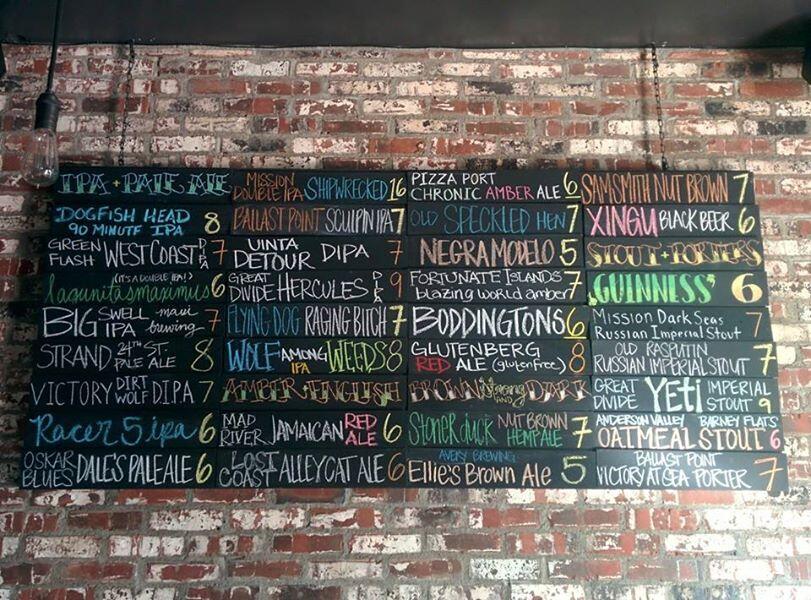 IPA + PALE ALE
DOGFISH HEAD
90 MINUTE IPA 8
GREEN
FLASH WEST COAST DIPA 7
(IT'S A DOUBLE IPA!)
lagunitas maximus 6
BIG SWELL
IPA maui
brewing 7
STRAND 24TH ST.
PALE ALE 8
VICTORY DIRT
WOLF DIPA 7
Racer 5 ipa 6
OSKAR
BLUES DALE'S PALE ALE 6
MISSION
DOUBLE IPA SHIPWRECKED 16
BALLAST POINT SCULPIN IPA 7
UINTA
DETOUR DIPA 7
GREAT
DIVIDE HERCULES DIPA 9
FLYING DOG RAGING BITCH 7
WOLF AMONG WEEDS 8
IPA
AMBER + ENGLISH
MAD
RIVER JAMAICAN RED
ALE 6
LOST
COAST ALLEYCAT ALE 6
PIZZA PORT
CHRONIC AMBER ALE 6
OLD SPECKLED HEN 7
NEGRA MODELO 5
FORTUNATE ISLANDS
blazing world amber 7
BODDINGTONS 6
GLUTENBERG
RED ALE (gluten free) 8
BROWN Strong AND DARK
Stoner duck NUT BROWN
HEMP ALE 7
AVERY BREWING
Ellie's Brown Ale 5
SAM SMITH NUT BROWN 7
XINGU BLACK BEER 6
STOUT + PORTERS
GUINNESS' 6
MISSION DARK SEAS
RUSSIAN IMPERIAL STOUT 7
OLD RASPUTIN
RUSSIAN IMPERIAL STOUT 7
GREAT
DIVIDE YETI IMPERIAL
STOUT 9
ANDERSON VALLEY BARNEY FLATS
OATMEAL STOUT 6
BALLAST POINT
VICTORY AT SEA PORTER 7